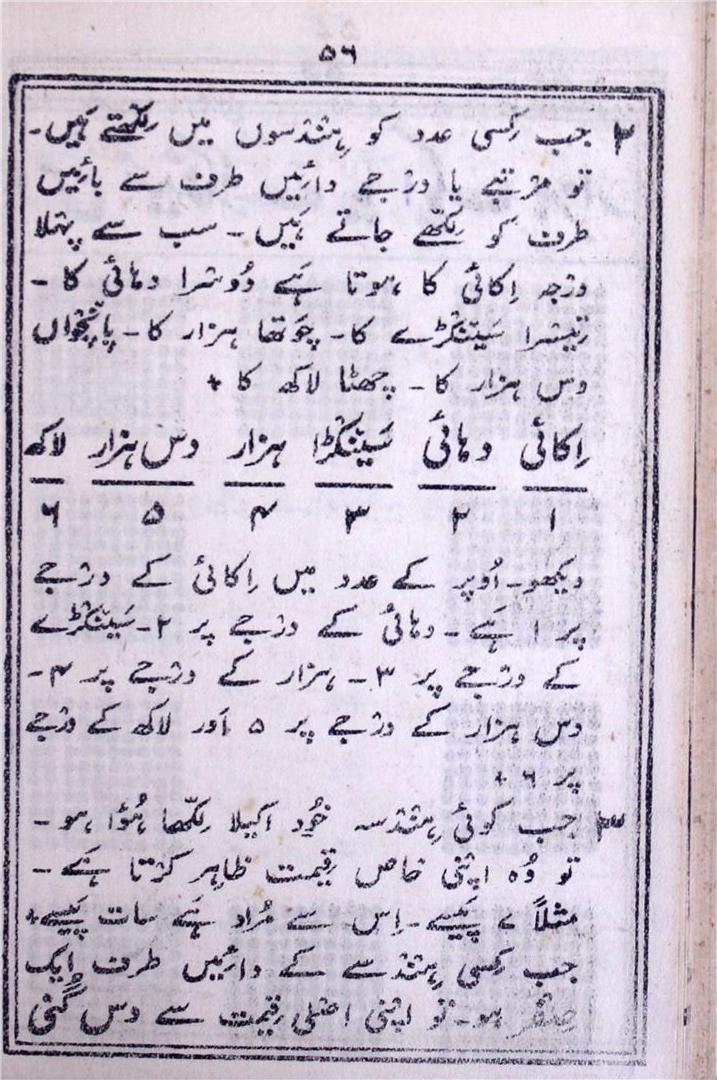 ۵۶
۲ جب کِسی عدد کو ہِنْدسوں میں لِکھْتے ہَیں۔
تو مرْتبے یا درْجے دائیں طرف سے بائیں
طرف کو لِکھّے جاتے ہَیں۔ سب سے پہْلا
درْجہ اِکائی کا ہوتا ہَے دُوسْرا دہائی کا۔
تِیسْرا سَیْنکْڑے کا۔ چَوتھا ہزار کا۔ پانْچْواں
دس ہزار کا۔ چھٹا لاکھ کا +
اِکائی دہائی سَینْکْڑا ہزار دس ہزار لاکھ
۱ ۲ ۳ ۴ ۵ ۶
دیکھو۔ اُوپر کے عدد میں اِکائی کے درْجے
پر ۱ ہَے۔ دہائی کے درْجے پر ۲۔ سَینْکْڑے
کے درْجے پر ۳۔ ہزار کے درْجے پر ۴۔
دس ہزار کے درْجے پر ۵ اَور لاکھ کے درْجے
پر ۶ +
۳ جب کوئی ہِنْدسہ خُود اکیلا لِکھّا ہُؤا ہو۔
تو وُہ اپْنی خاص قِیمت ظاہِر کرْتا ہَے۔
مثلاً ۷ پَیسے۔ اِس سے مُراد ہَے سات پَیسے +
جب کِسی ہِنْدسے کے دائیں طرف ایک
صِفْر ہو۔ تو اپْنی اصْلی قِیمت سے دس گُنی